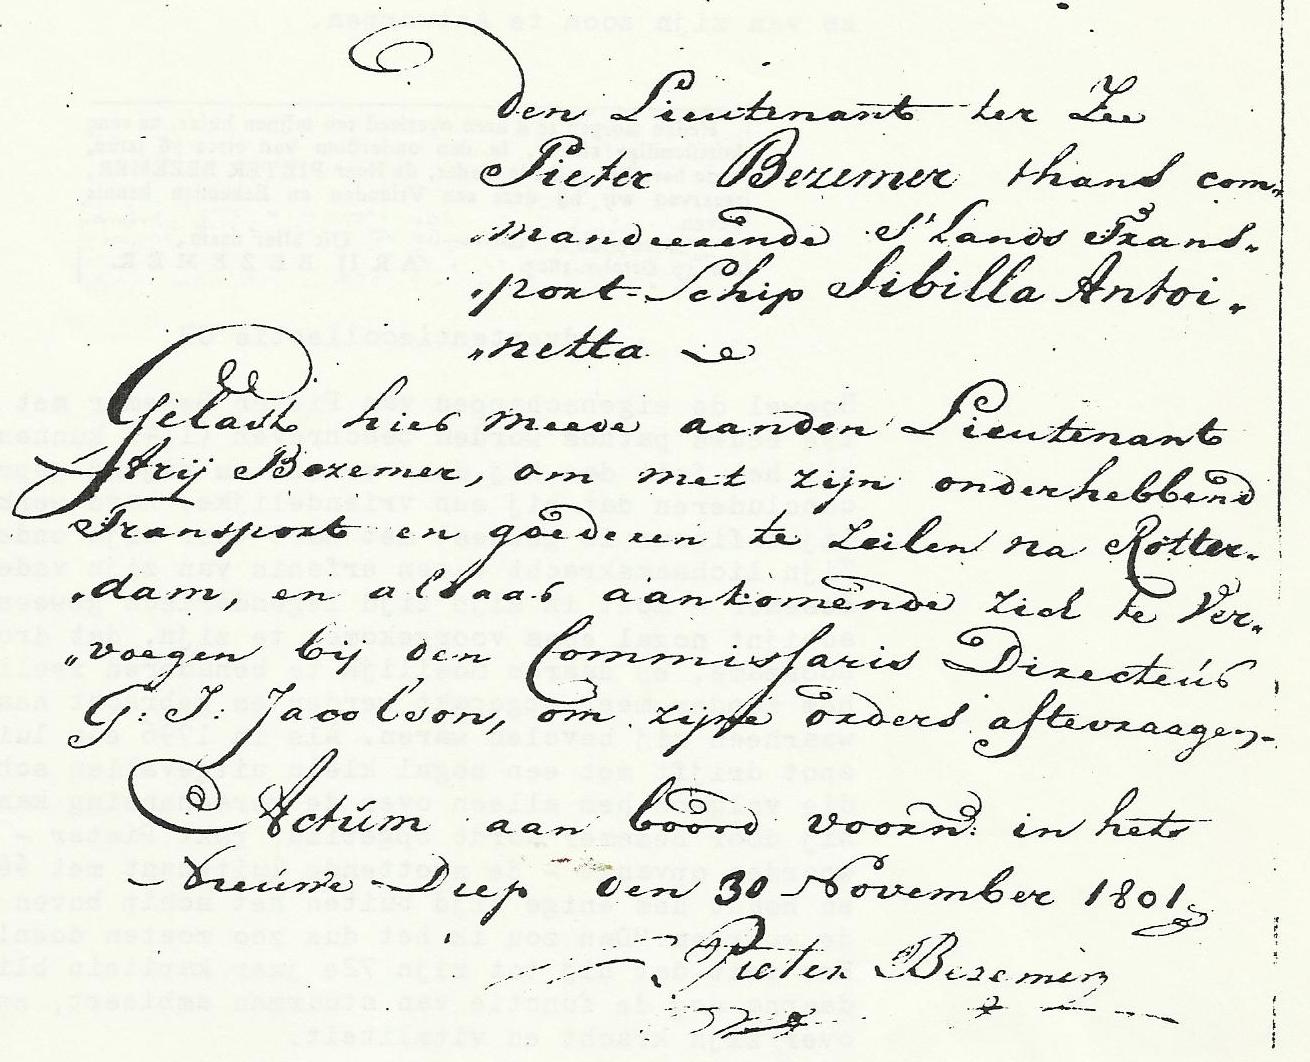 Den Lieutenant ter Zee
Pieter Bezemer thans com„
„mandeerende S'Lands Trans„
„port-Schip Sibilla Antoi„
„netta
Gelast hier meede aanden Lieutenant
Arij Bezemer, om met zijn onderhebbend
Transport en goederen te Zeilen na Rotter„
„dam, en aldaar aankomende zich te Ver„
„voegen bij den Commissaris Directeúr
G: I: Jacobson, om zijne orders aftevraagen,
Actúm aan boord voorn: in het
Nieúwe-Diep den 30 November 1801
Pieter Bezemer